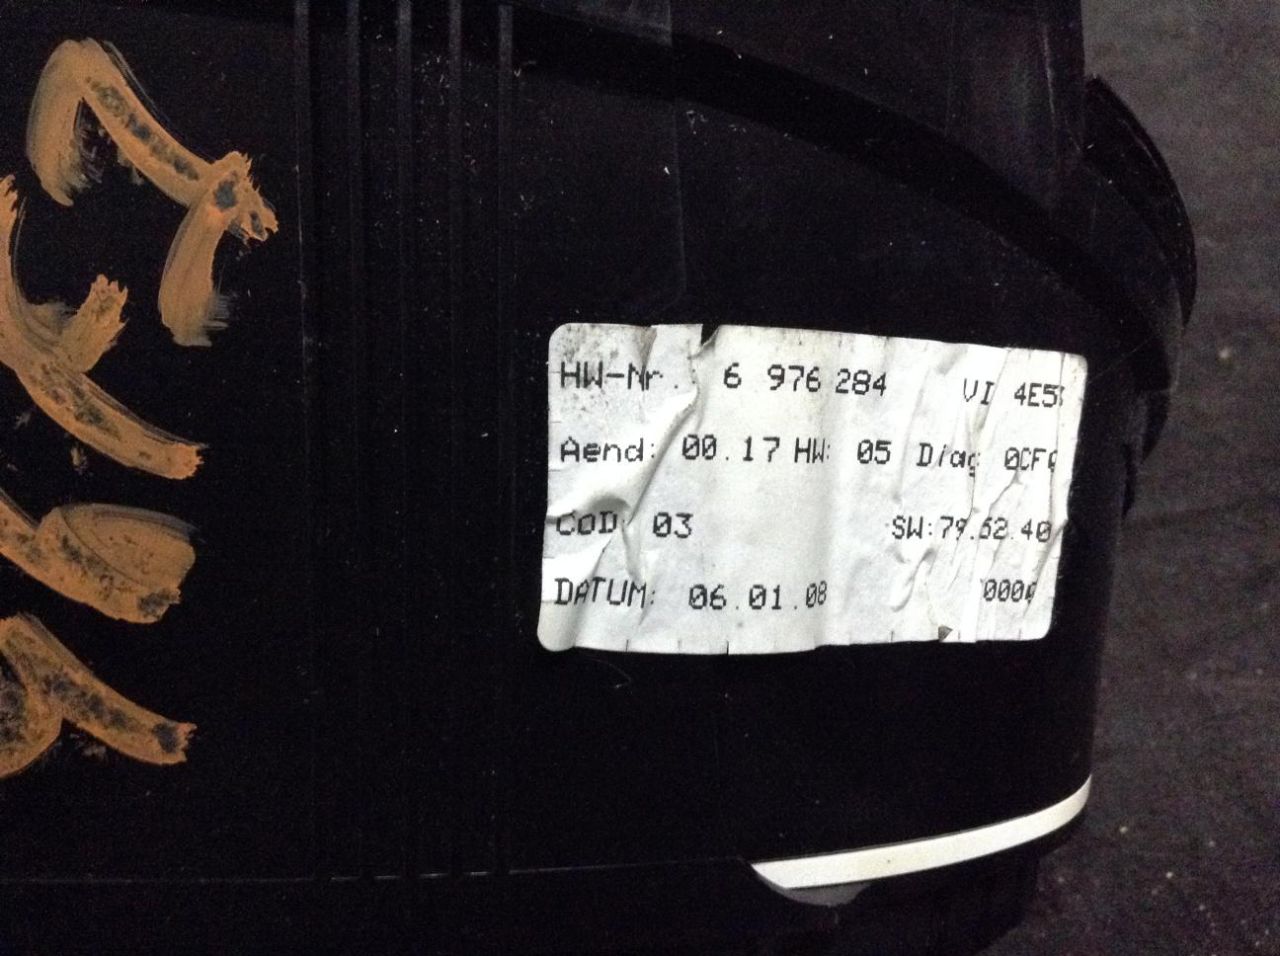 HW-Nr. 6 976 284 VI
Aend: 00.17 HW: 05 Diag
CoD: 03 SW:79.52.40
DATUM: 06.01.08